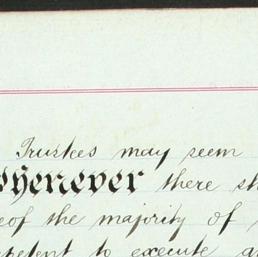 Trustees may seem
Whenever there sh
eof the majority of
petent to execute